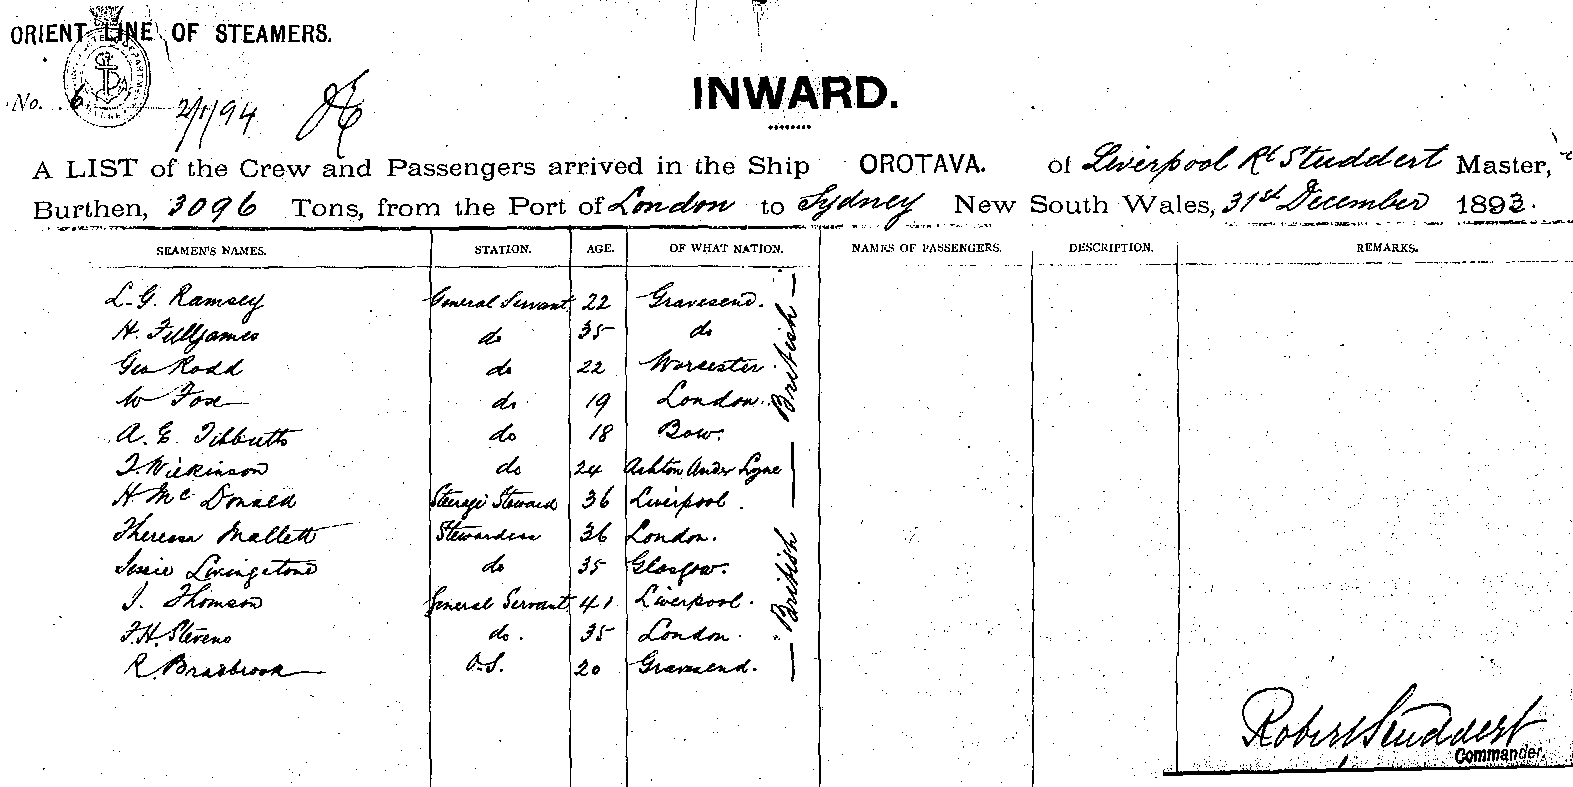 ORIENT LINE OF STEAMERS.
No. 6
2/1/94
INWARD.
A LIST of the Crew and Passengers arrived in the Ship OROTAVA. of Liverpool Rt Studdert Master,
Burthen, 3096 Tons, from the Port of London to Sydney New South Wales, 31st December 1893.
SEAMEN'S NAMES. STATION. AGE. OF WHAT NATION. NAMES OF PASSENGERS. DESCRIPTION. REMARKS.
L. G. Ramsey General Servant 22 Gravesend.
H. Felljames do 35 do
Geo Rodd do 22 Worcester
W Fox do 19 London
A. E. Tibbutts do 18 Bow.
T. Wilkinson do 24 Ashton Under Lyne
H Mc Donald Steerage Steward 36 Liverpool.
Theresa Mallett Stewardess 36 London.
Jessie Livingstone do 35 Glasgow.
J. Thomson General Servant 41 Liverpool.
F.H. Stevens do. 35 London.
R. Bradbrook O.S. 20 Gravesend.
— British —
— British —
Robert Studdert
Commander.